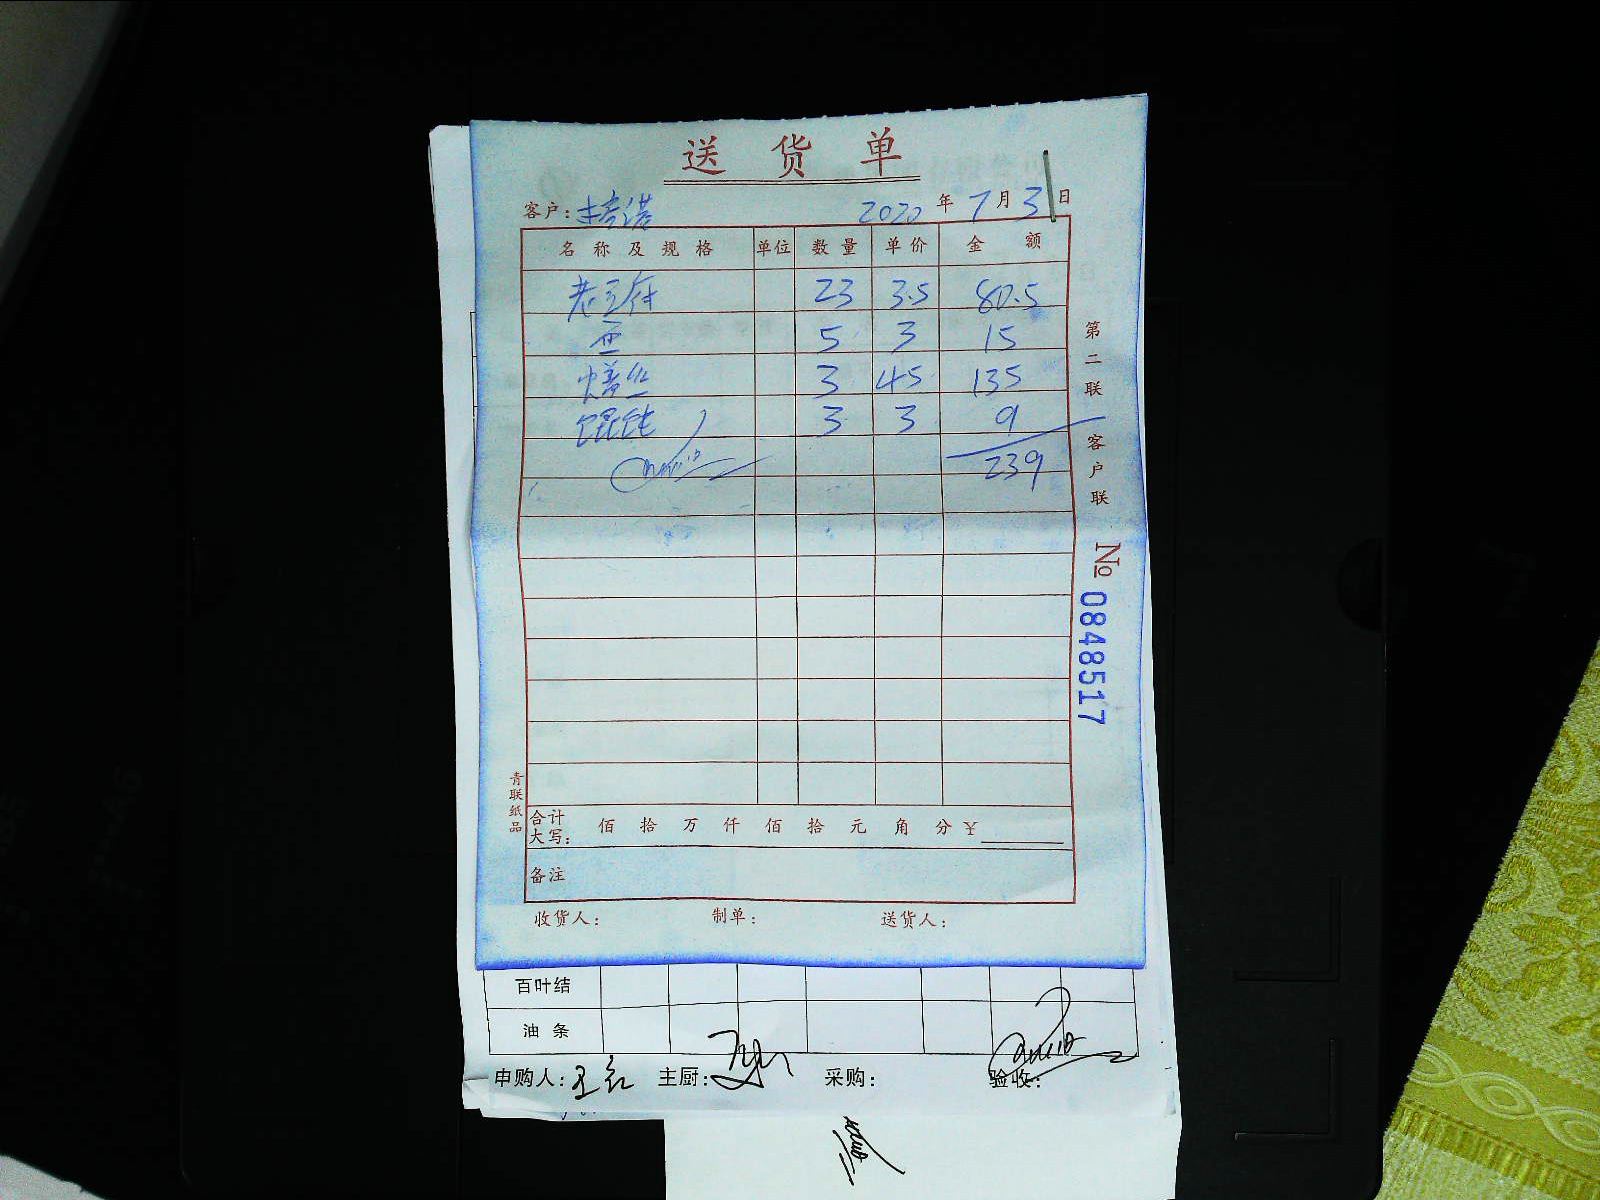 送货单
客户: 2020年7月31日
名称及规格 单位 数量 单价 金额
老豆付 23 3.5 80.5
5 3 15
丝 3 45 135
馄饨 3 3 9
239
第二联 客户联
№ 0848517
青联纸品
合计大写: 佰 拾 万 仟 佰 拾 元 角 分 ¥
备注
收货人: 制单: 送货人:
百叶结
油条
申购人: 主厨: 采购: 验收: